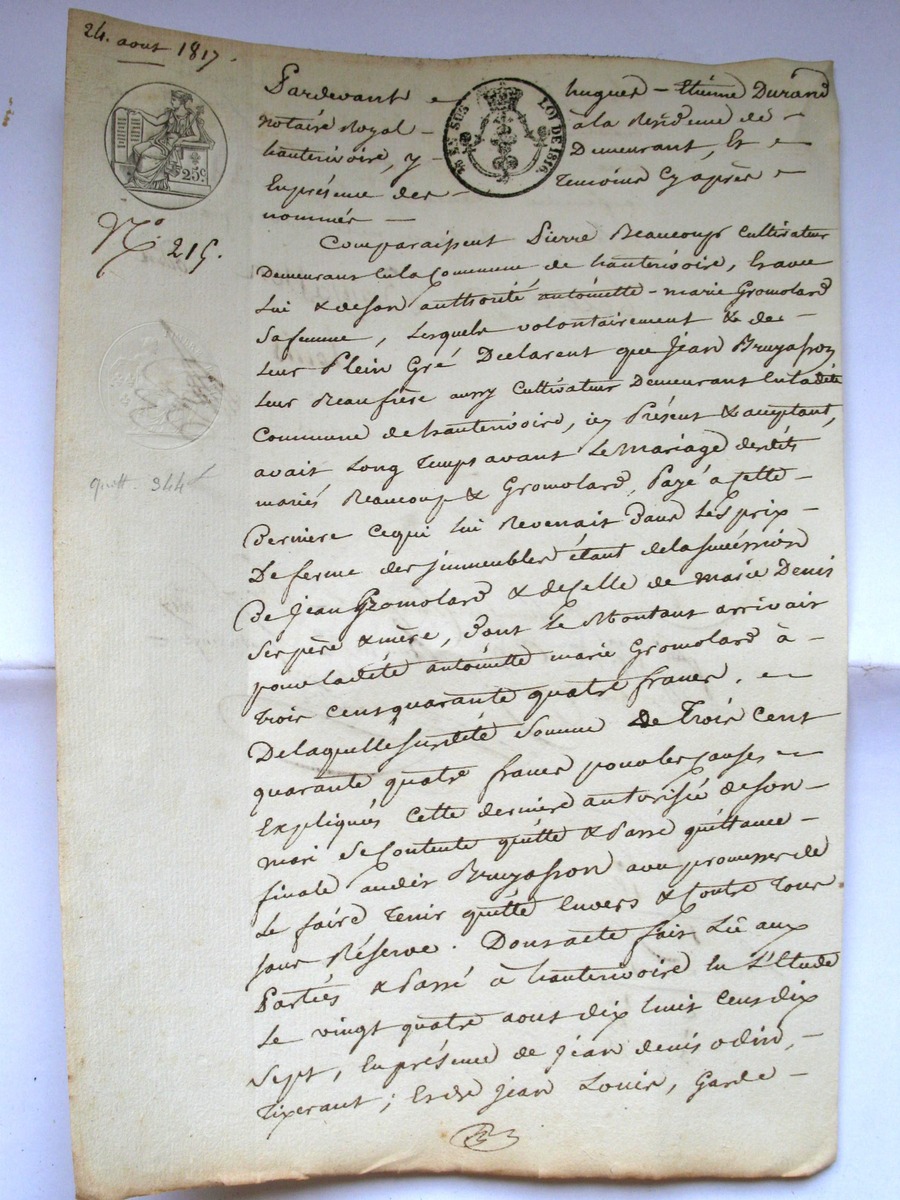 24. aout 1817.
25c
EN SUS LOI DE 1816.
N.º 215.
quitt. 344
Pardevant hugues - Etienne Durand
notaire Royal - à la Residence de -
hauterivoire, y - Demeurant, Et
En présence des - Temoins Cy après
nommés -
Comparaissent Pierre Beaucoup Cultivateur
Demeurant En la Commune de hauterivoire, Et avec
Lui & de son authorité antoinette - marie Gromolard
Sa femme, Lesquels volontairement & de -
Leur Plein Gré Déclarent que Jean Bruyasson
Leur Beaufrère aussy Cultivateur Demeurant En ladite
Commune de hauterivoire, icy Présent & acceptant,
avait Long Temps avant Le Mariage desdits
mariés Beaucoup & Gromolard, Payé à Cette -
Dernière Ce qui Lui Revenait Dans Les prix -
De ferme des jmmeubles étant de la succéssion
De Jean Gromolard & de Celle de Marie Denis
Ses père & mère, Dont Le Montant arrivait
pour ladite antoinette marie Gromolard à -
Trois Cent quarante quatre francs,
De laquelle susdite Somme De Trois Cent
quarante quatre francs pour les Causes
Expliquées Cette dernière autorisée de son -
mari Se Contente quitte & Passe quittance -
finale audit Bruyasson avec promesse de
Le faire Tenir quitte Envers & Contre Tous
sans Réserve. Dont acte fait Lû aux
Parties & Passé à hauterivoire En L'Etude
Le vingt quatre aout dix huit Cent dix
Sept, En présence de Jean denis odin, -
Tixerant; Et de Jean Louis, Garde -